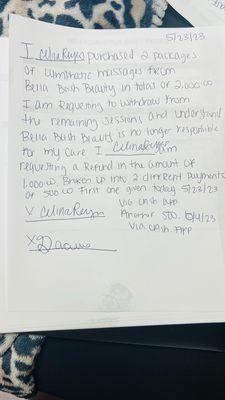 5/23/23
I Celina Reyes purchased 2 packages
of lumphatic massages from
Bella Bash Beauty in total of 2,000.00
I am Requesting to withdraw from
the remaining sessions and understand
Bella Bash Beauty is no longer responsible
for my care I Celina Reyes am
requesting a Refund in the amount of
1,000.00, Broken up into 2 different payments
of 500.00 First one given today 5/23/23
via cash app.
X Celina Reyes
Another 500. 6/4/23
via cash. App
X